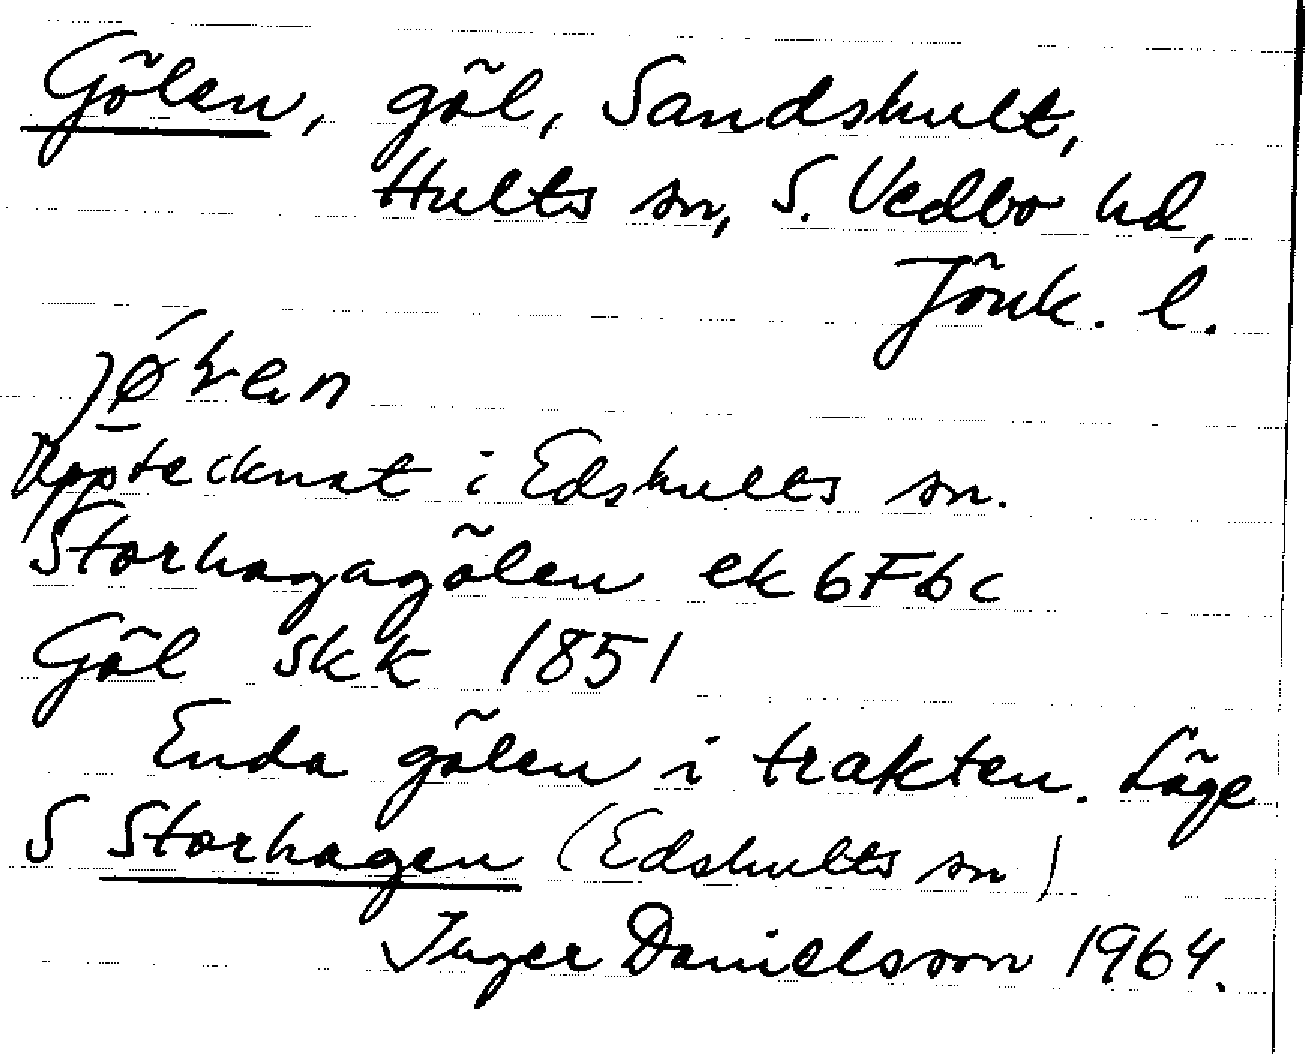 Gölen, göl, Sandshult,
Hults sn, S. Vedbo hd,
Jönk. l.
Upptecknat i Edshults sn.
Storhagagölen ek 6F6c
Göl skk 1851
Enda gölen i trakten. Läge
S Storhagen (Edshults sn)
Inger Danielsson 1964.